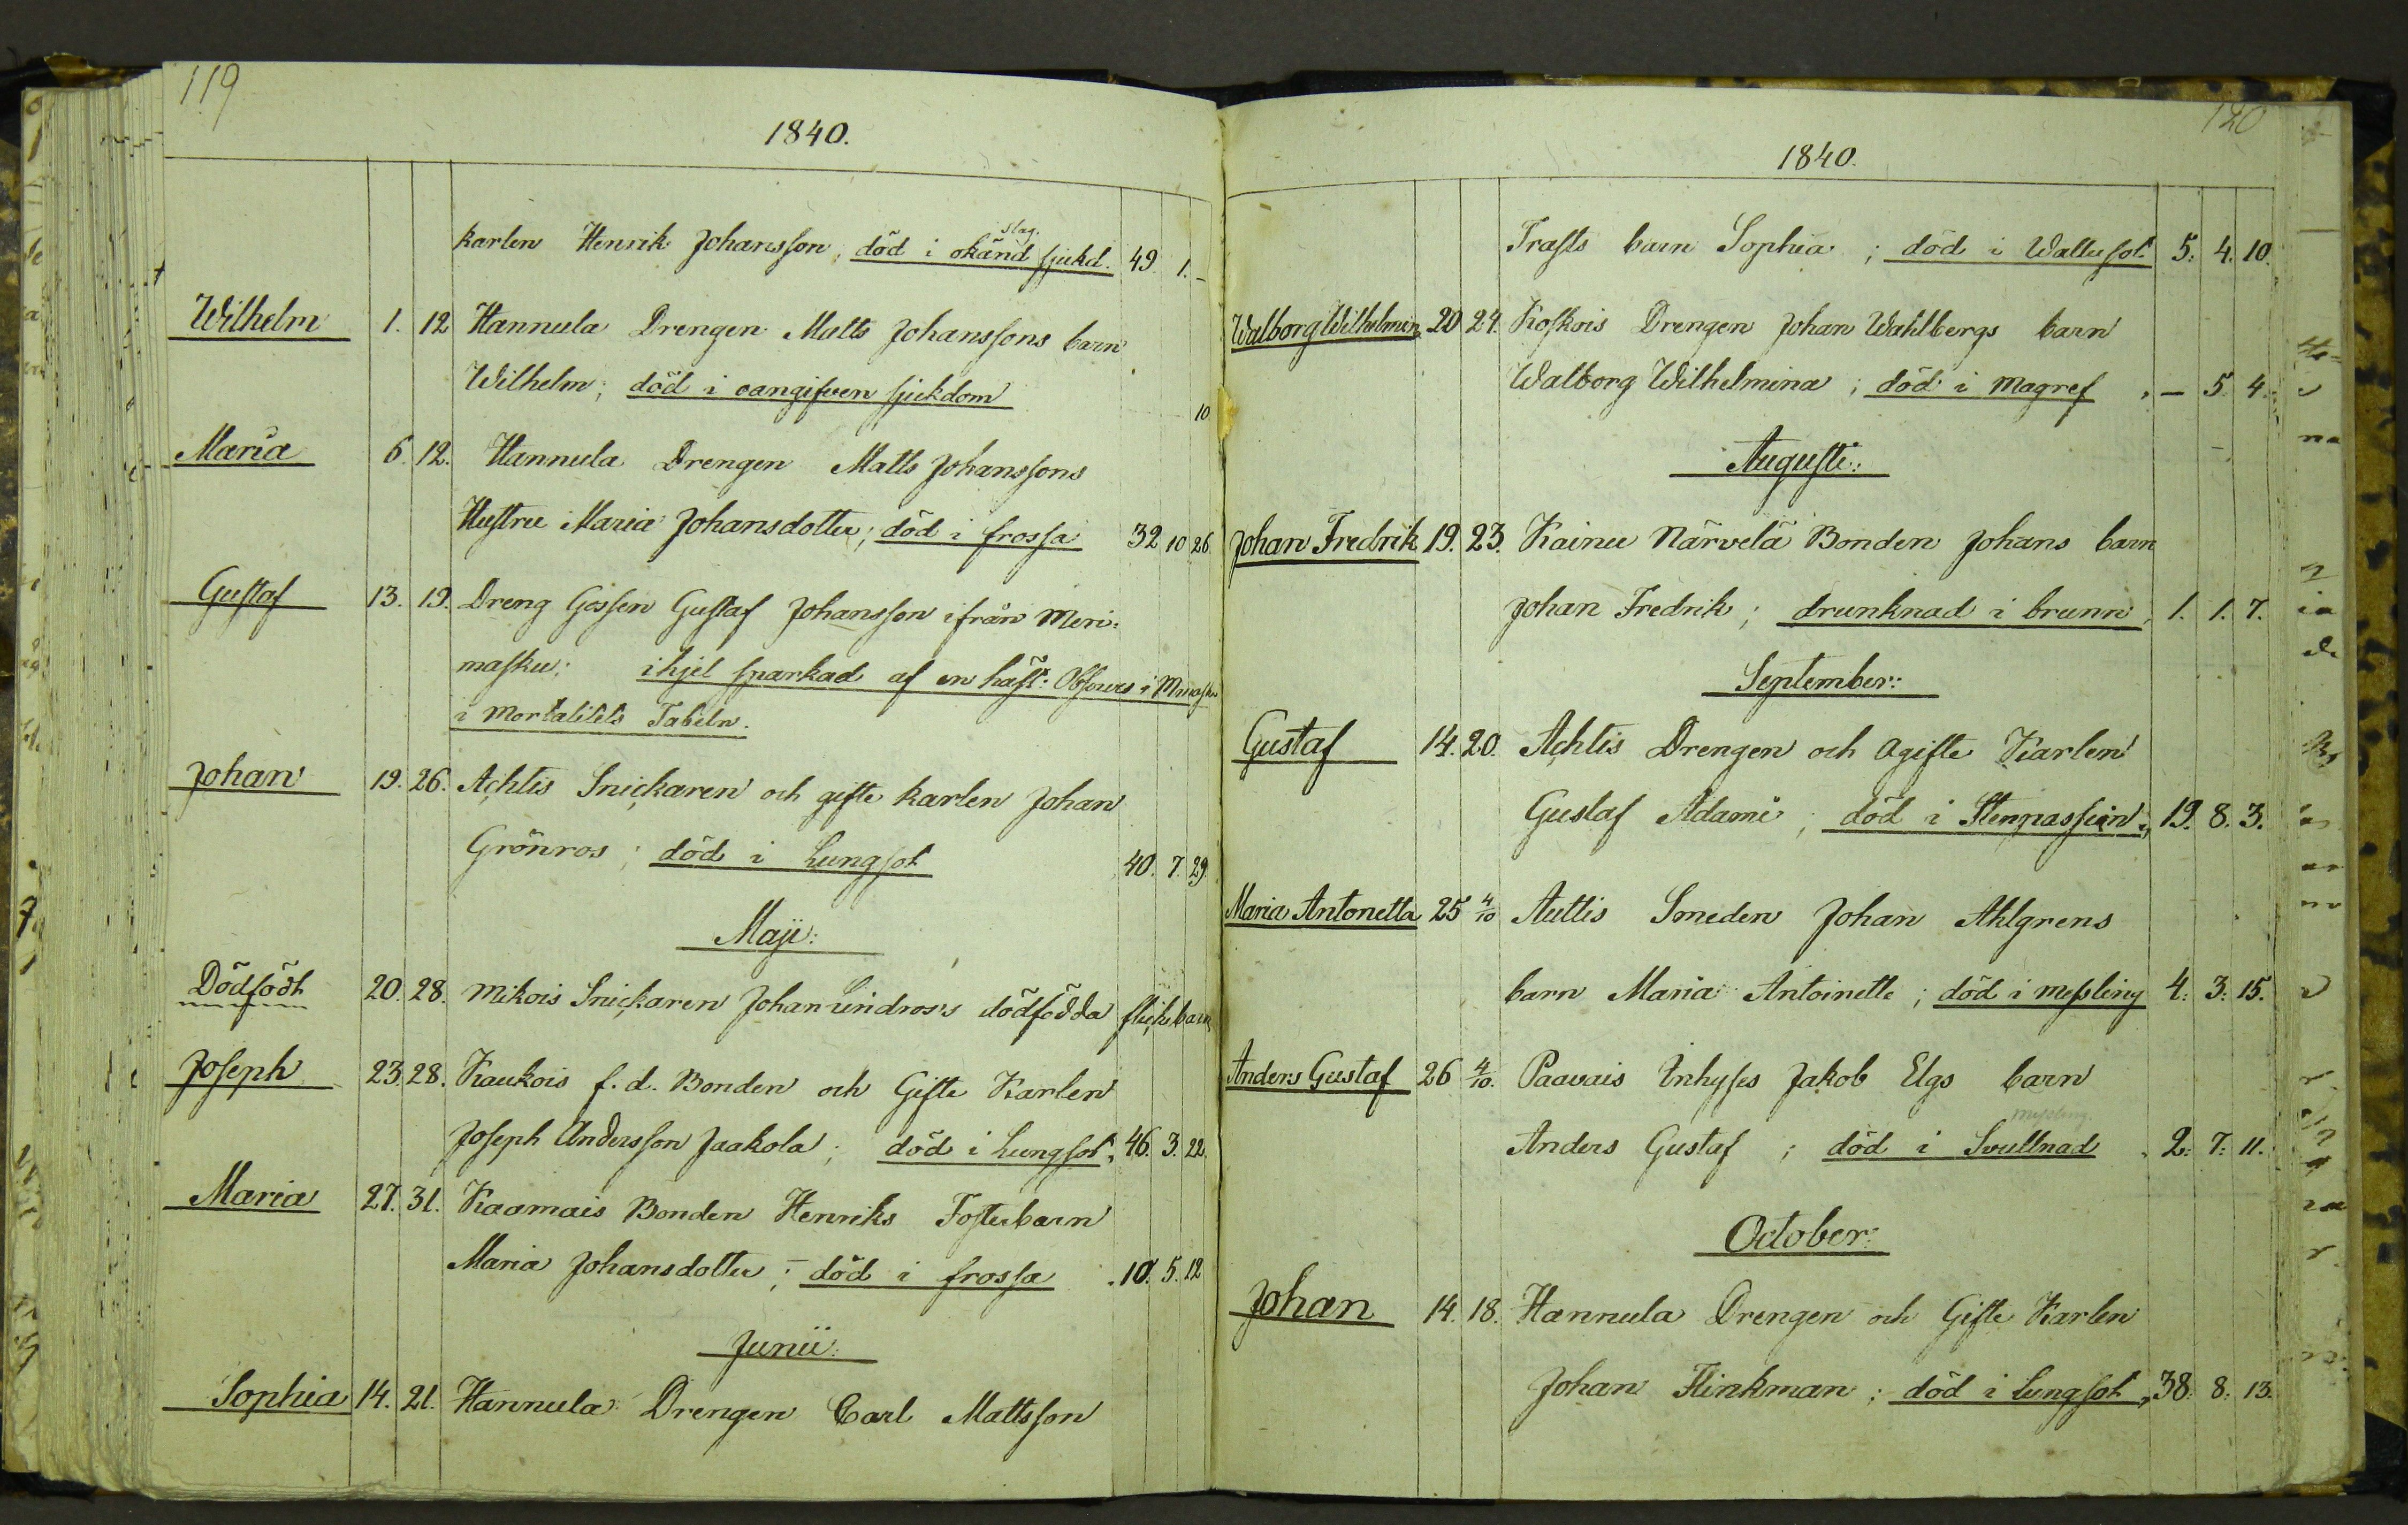 119
1840.
slag.
karlen Henrik Johansson, död i okänd sjukd. 49. 1. –
Wilhelm 1. 12 Hannula Drengen Matts Johanssons barn
Wilhelm; död i oangifven sjukdom 10.
Maria 6. 12. Hannula Drengen Matts Johanssons
Hustru Maria Johansdotter; död i frossa 32 10 26.
Gustaf 13. 19. Dreng Gossen Gustaf Johansson ifrån Meri-
masku: ihjel sparkad af en häst: i
i Mortalitets Tabeln.
Johan 19. 26. Achtis Snickaren och gifte karlen Johan
Grönros; död i Lungsot 40. 7. 29.
Maji:
Dödfödt 20. 28. Mikois Snickaren Johan Lindros's dödfödda flickebarn
Joseph 23. 28. Kaukois f. d. Bonden och Gifte Karlen
Joseph Andersson Jaakola; död i Lungsot, 46. 3. 22.
Maria 27. 31. Kaamais Bonden Henriks Fosterbarn
Maria Johansdotter; död i frossa 10. 5. 12
Junii:
Sophia 14. 21. Hannula Drengen Carl Mattsson
120
1840.
Trasts barn Sophia; död i Wattusot 5: 4. 10.
Walborg Wilhelmin 20 24. Koskois Drengen Johan Wahlbergs barn
Walborg Wilhelmina; död i Magref, – 5. 4.
Augusti:
Johan Fredrik 19. 23. Kainu Närvelä Bonden Johans barn
Johan Fredrik; drunknad i brunn, 1. 1. 7.
September:
Gustaf 14. 20. Achtis Drengen och Ogifte Karlen
Gustaf Adami; död i Stenpassion, 19. 8. 3.
Maria Antonetta 25 4/10 Auttis Smeden Johan Ahlgrens
barn Maria Antoinette; död i messling 4: 3: 15.
Anders Gustaf 26 4/10. Paavais Inhyses Jakob Elgs barn
messling.
Anders Gustaf; död i Svullnad 2: 7: 11.
October:
Johan 14. 18. Hannula Drengen och Gifte Karlen
Johan Flinkman; död i Lungsot, 38: 8: 13.